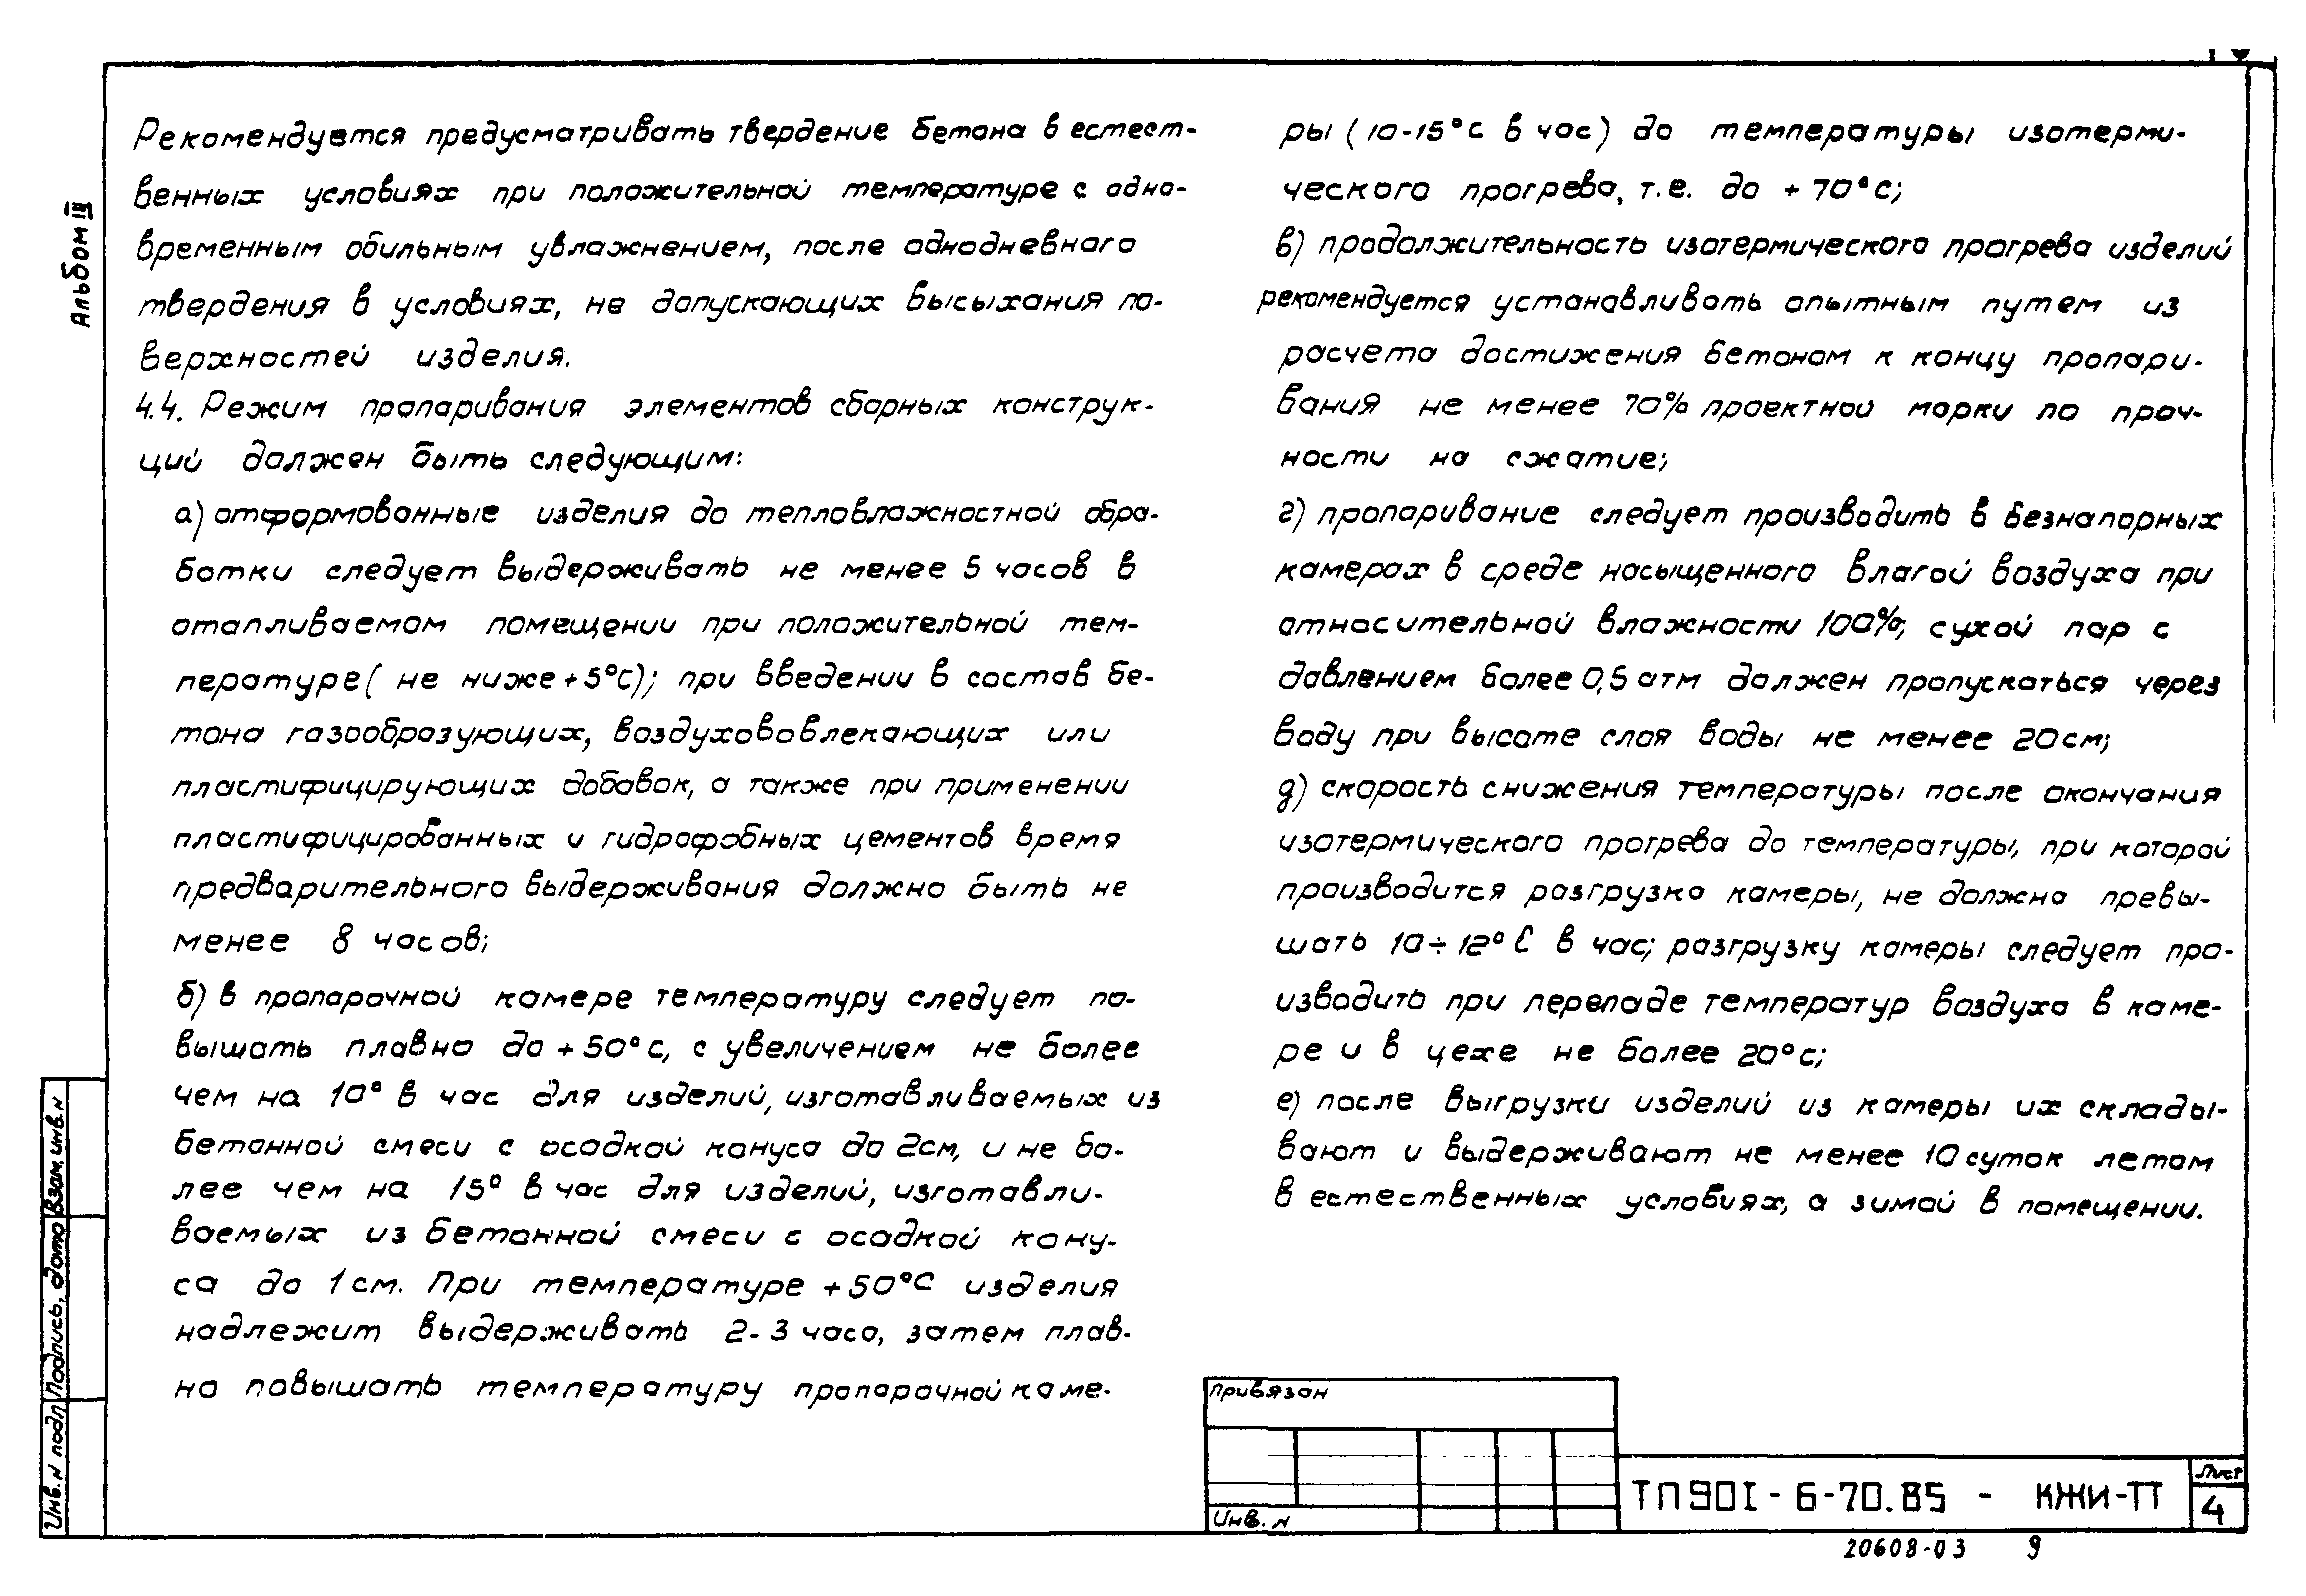 Альбом III
Рекомендуется предусматривать твердение бетона в естест-
венных условиях при положительной температуре с одно-
временным обильным увлажнением, после однодневного
твердения в условиях, не допускающих высыхания по-
верхностей изделия.
4.4. Режим пропаривания элементов сборных конструк-
ций должен быть следующим:
а) отформованные изделия до тепловлажностной обра-
ботки следует выдерживать не менее 5 часов в
отапливаемом помещении при положительной тем-
пературе (не ниже +5°С); при введении в состав бе-
тона газообразующих, воздухововлекающих или
пластифицирующих добавок, а также при применении
пластифицированных и гидрофобных цементов время
предварительного выдерживания должно быть не
менее 8 часов;
б) в пропарочной камере температуру следует по-
вышать плавно до +50°С, с увеличением не более
чем на 10° в час для изделий, изготавливаемых из
бетонной смеси с осадкой конуса до 2см, и не бо-
лее чем на 15° в час для изделий, изготавли-
ваемых из бетонной смеси с осадкой кону-
са до 1см. При температуре +50°С изделия
надлежит выдерживать 2-3 часа, затем плав-
но повышать температуру пропарочной каме-
ры (10-15°С в час) до температуры изотерми-
ческого прогрева, т.е. до +70°С;
в) продолжительность изотермического прогрева изделий
рекомендуется устанавливать опытным путем из
расчета достижения бетоном к концу пропари-
вания не менее 70% проектной марки по проч-
ности на сжатие;
г) пропаривание следует производить в безнапорных
камерах в среде насыщенного влагой воздуха при
относительной влажности 100%; сухой пар с
давлением более 0,5 атм должен пропускаться через
воду при высоте слоя воды не менее 20см;
д) скорость снижения температуры после окончания
изотермического прогрева до температуры, при которой
производится разгрузка камеры, не должна превы-
шать 10÷12°С в час; разгрузку камеры следует про-
изводить при перепаде температур воздуха в каме-
ре и в цехе не более 20°С;
е) после выгрузки изделий из камеры их склады-
вают и выдерживают не менее 10 суток летом
в естественных условиях, а зимой в помещении.
Инв. N подл Подпись, дата Взам. инв. N
Привязан
Инв. N
ТП 901-6-70.85 - КЖИ-ТТ
Лист
4
20608-03 9